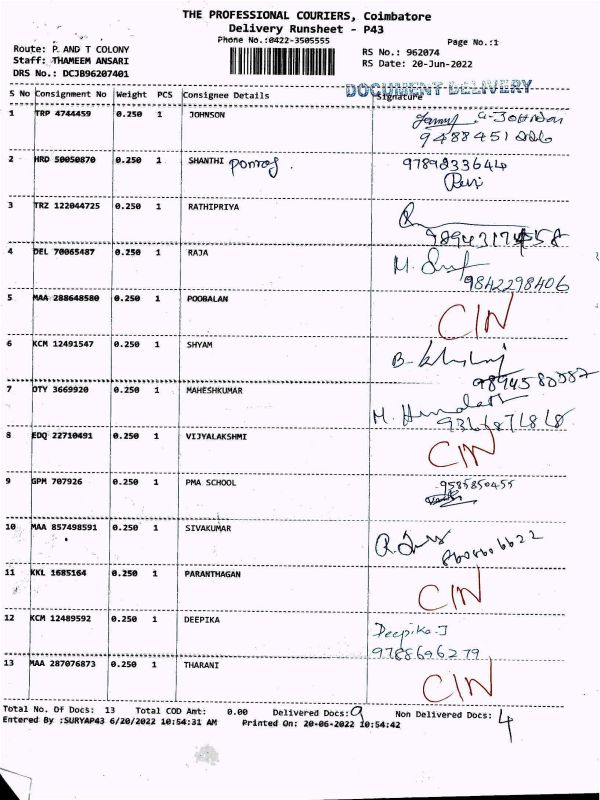 THE PROFESSIONAL COURIERS, Coimbatore
Delivery Runsheet - P43
Phone No.:0422-3505555
Page No.:1
Route: P. AND T COLONY
Staff: THAMEEM ANSARI
DRS No.: DCJB96207401
RS No.: 962074
RS Date: 20-Jun-2022
DOCUMENT DELIVERY
S No Consignment No Weight PCS Consignee Details Signature
1 TRP 4744459 0.250 1 JOHNSON
2 HRD 50050870 0.250 1 SHANTHI 9789233644
3 TRZ 122044725 0.250 1 RATHIPRIYA
4 DEL 70065487 0.250 1 RAJA 9842298406
5 MAA 288648580 0.250 1 POOBALAN CIN
6 KCM 12491547 0.250 1 SHYAM
7 OTY 3669920 0.250 1 MAHESHKUMAR
8 EDQ 22710491 0.250 1 VIJYALAKSHMI CIN
9 GPM 707926 0.250 1 PMA SCHOOL 9585850455
10 MAA 857498591 0.250 1 SIVAKUMAR
11 KKL 1685164 0.250 1 PARANTHAGAN CIN
12 KCM 12489592 0.250 1 DEEPIKA Deepika.J
9788696279
13 MAA 287076873 0.250 1 THARANI CIN
Total No. Of Docs: 13 Total COD Amt: 0.00 Delivered Docs: 9 Non Delivered Docs: 4
Entered By :SURYAP43 6/20/2022 10:54:31 AM Printed On: 20-06-2022 10:54:42